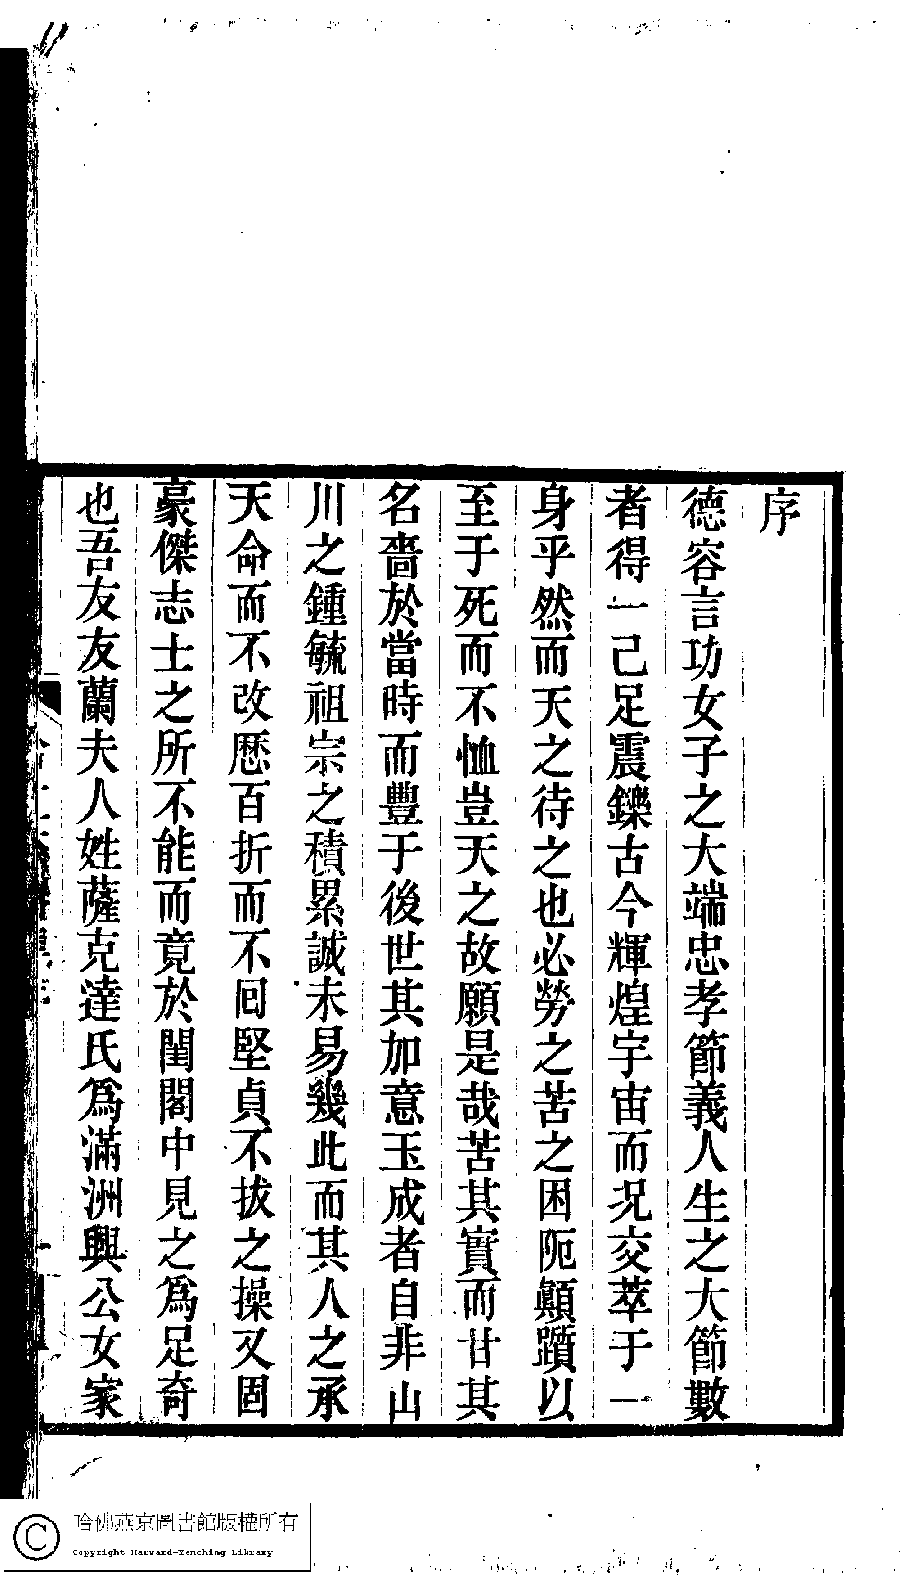 序
德容言功女子之大端忠孝節義人生之大節數
者得一己足震鑠古今輝煌宇宙而况交萃于一
身乎然而天之待之也必勞之苦之困阨顛躓以
至于死而不恤豈天之故願是哉苦其實而甘其
名嗇於當時而豐于後世其加意玉成者自非山
川之鍾毓祖宗之積累誠未易幾此而其人之承
天命而不改厯百折而不回堅貞不拔之操又固
豪傑志士之所不能而竟於閨閣中見之爲足奇
也吾友友蘭夫人姓薩克達氏爲滿洲興公女家
哈佛燕京圖書館版權所有
Copyright Harvard-Yenching Library